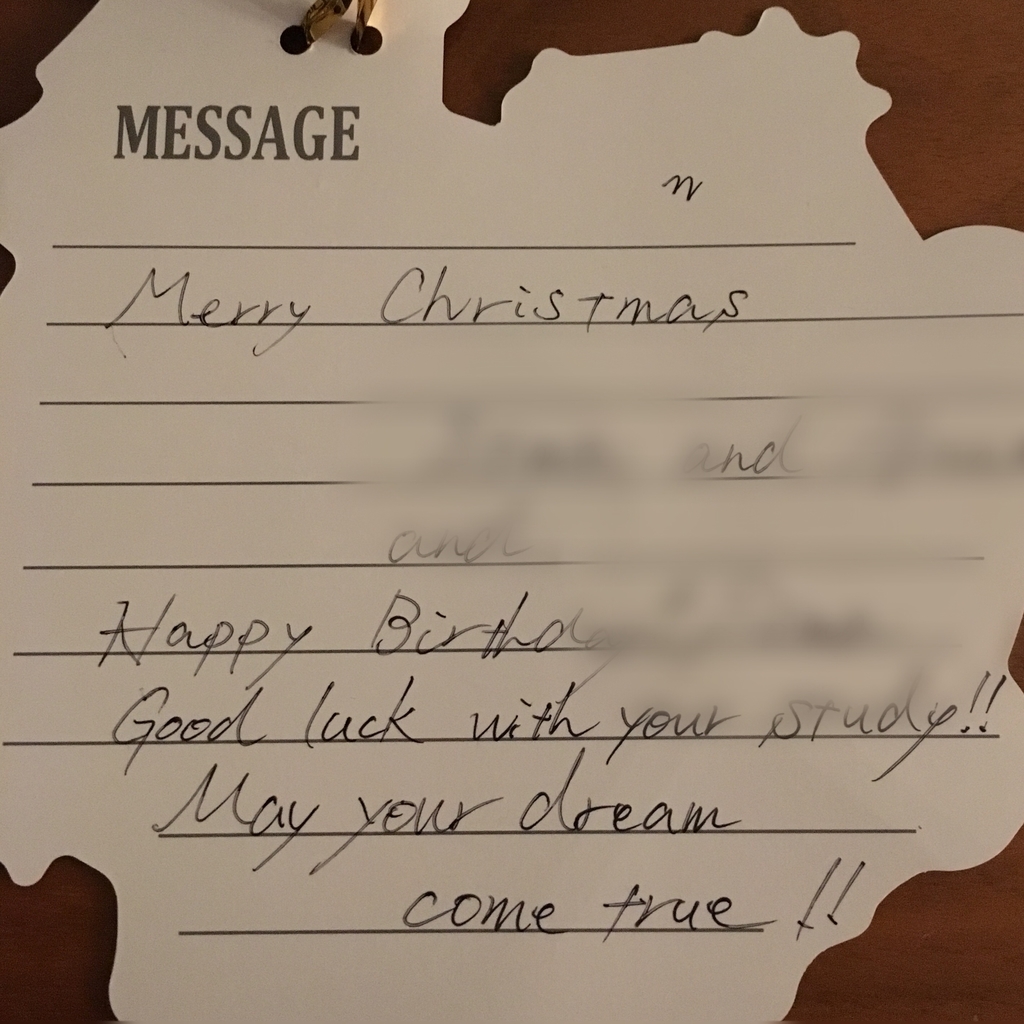 MESSAGE
n
Merry Christmas
and
and
Happy
Good luck with your study!!
May your dream
come true!!